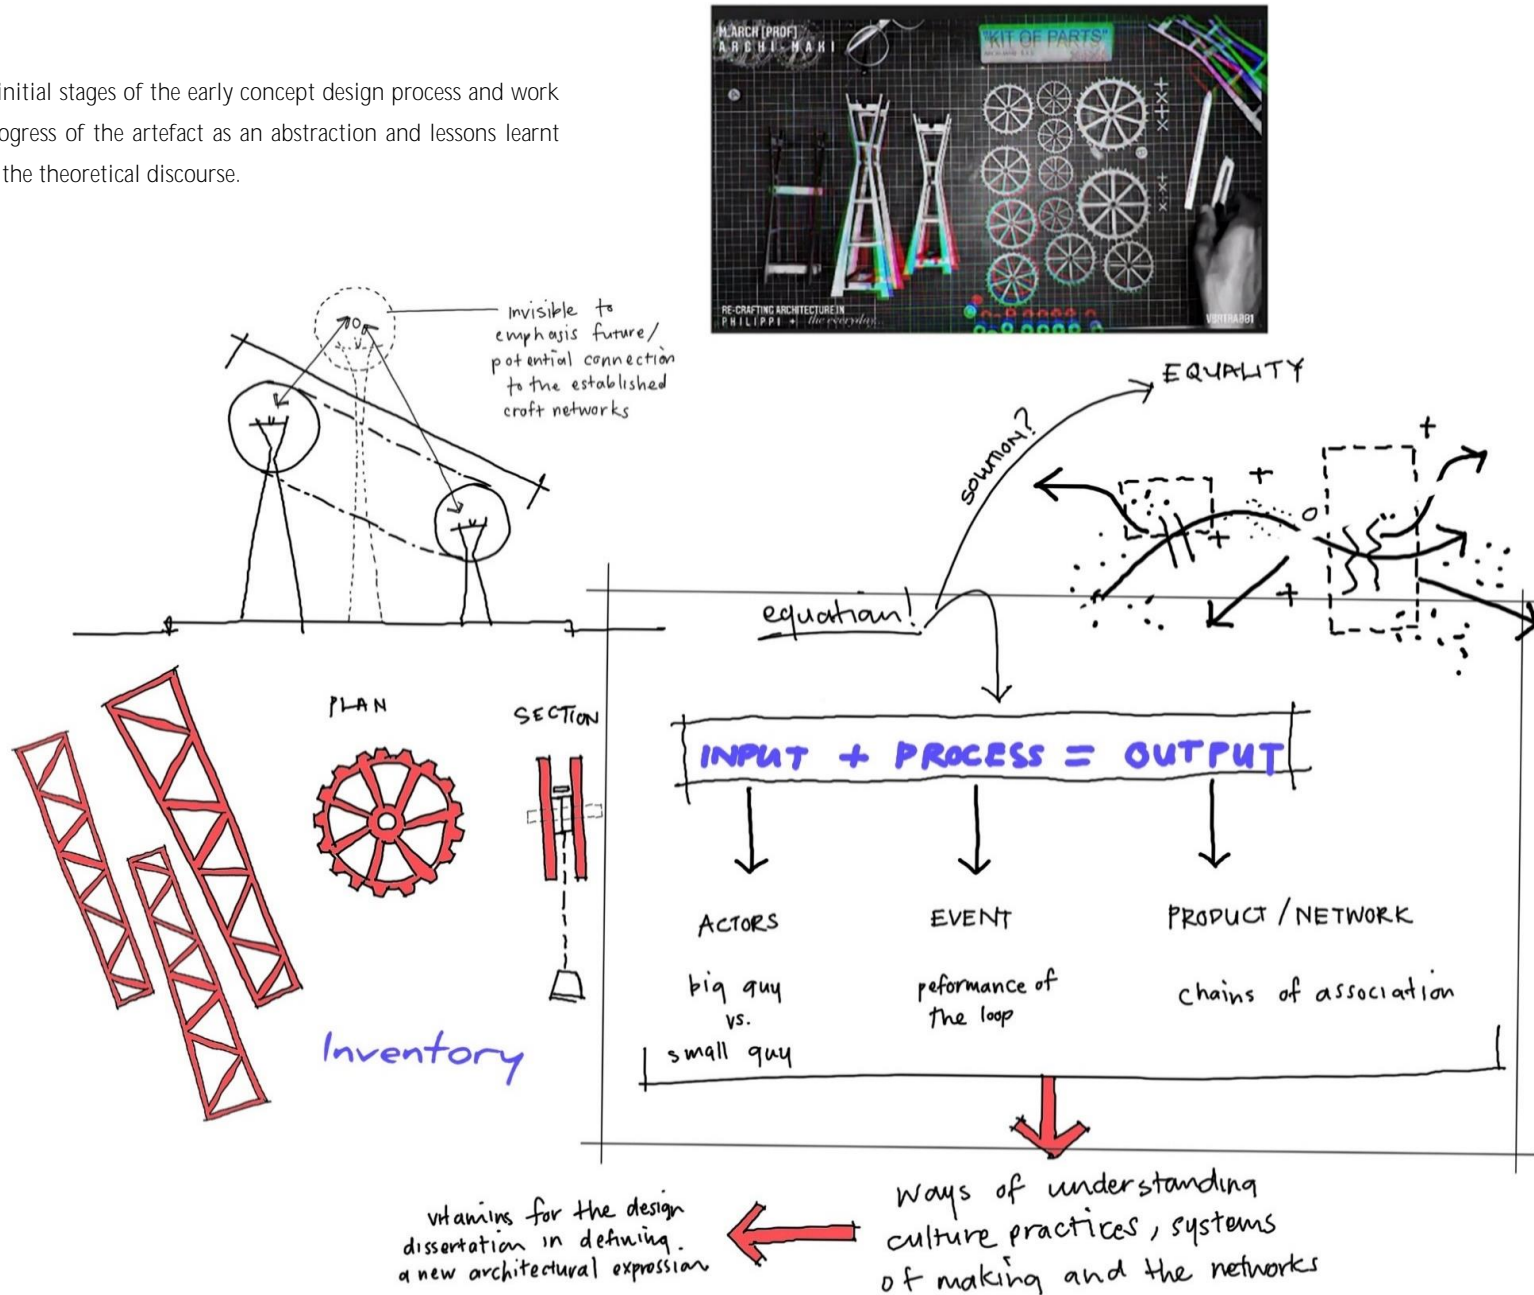 initial stages of the early concept design process and work
ogress of the artefact as an abstraction and lessons learnt
the theoretical discourse.
M.ARCH [PROF]
ARCHI-MAKI
"KIT OF PARTS"
RE-CRAFTING ARCHITECTURE IN
PHILIPPI + the everyday...
invisible to
emphasis future/
potential connection
to the established
croft networks
EQUALITY
solution?
equation!
PLAN
SECTION
INPUT + PROCESS = OUTPUT
ACTORS
big guy
vs.
small guy
EVENT
peformance of
the loop
PRODUCT / NETWORK
chains of association
Inventory
ways of understanding
culture practices, systems
of making and the networks
vitamins for the design
dissertation in defining.
a new architectural expression